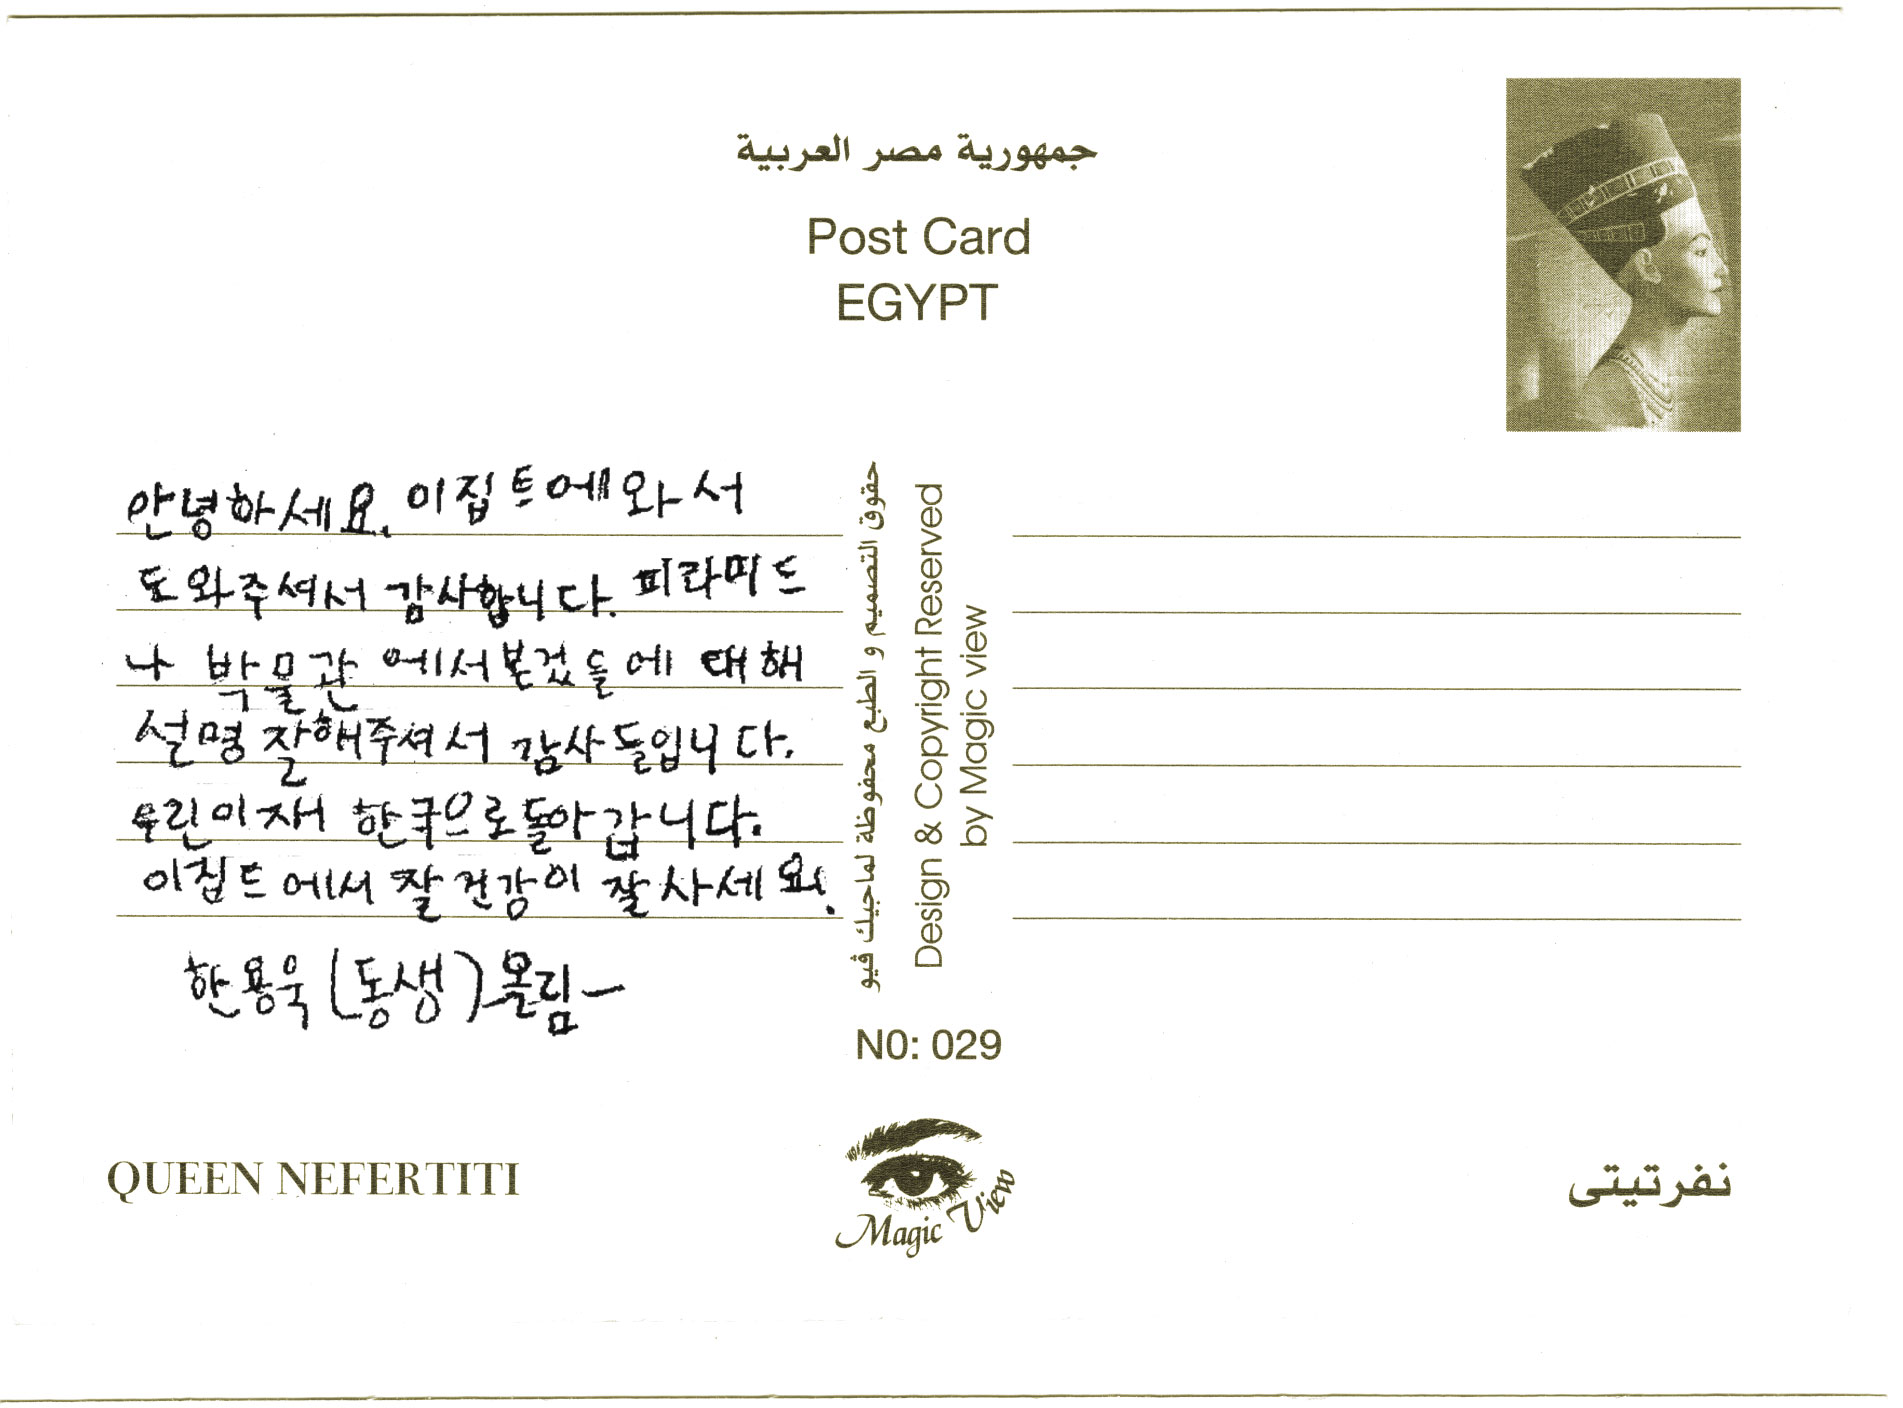 جمهورية مصر العربية
Post Card
EGYPT
안녕하세요. 이집트에와서
도와주셔서 감사합니다. 피라미드
나 박물관에서본겄들에 대해
설명 잘해주셔서 감사들입니다.
우린이재 한국으로돌아갑니다.
이집트에서 잘 건강이 잘사세요.
한용욱(동생)올림-
حقوق التصميم و الطبع محفوظة لماجيك ڤيو
Design & Copyright Reserved
by Magic view
N0: 029
Magic View
QUEEN NEFERTITI
نفرتيتى